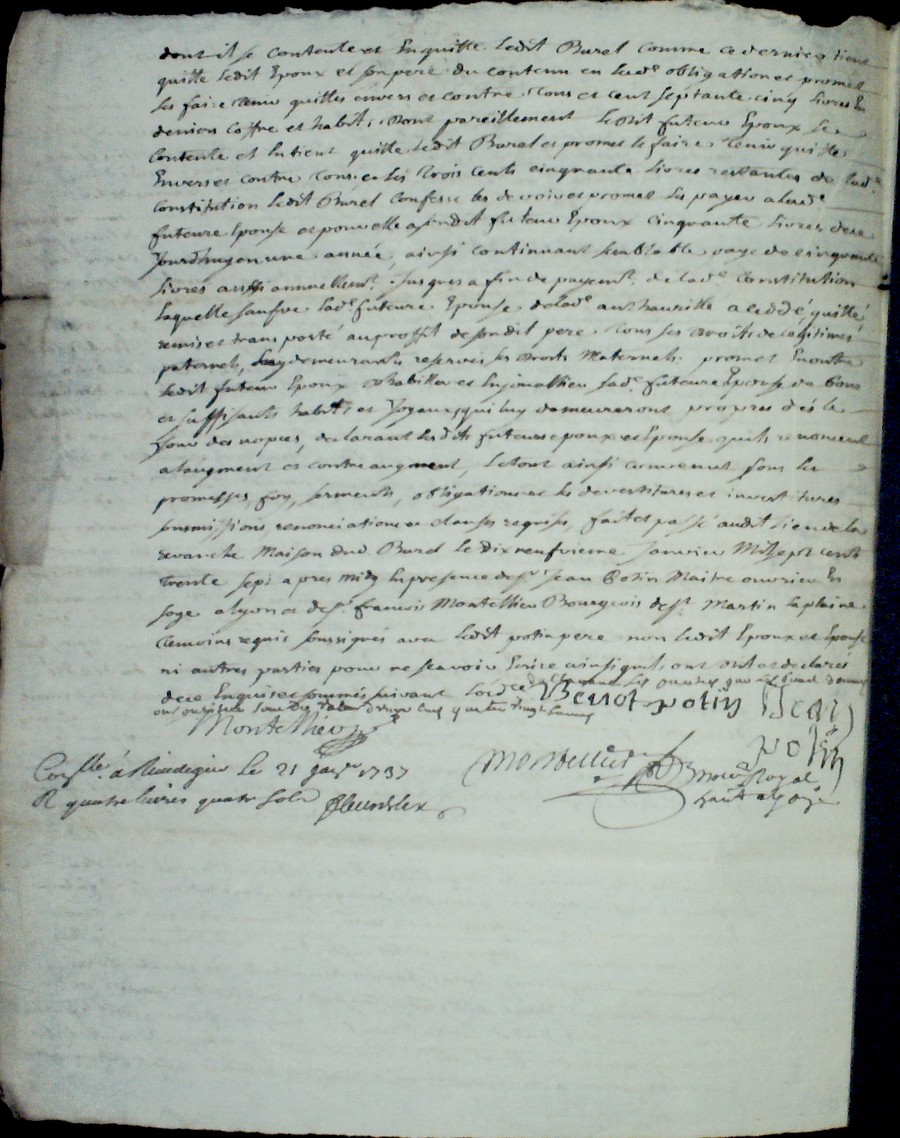 dont il se contente et En quitte ledit Burel comme ce dernier tient
quitte ledit Epoux et son pere du contenu en lad.e obligation et promet
les faire tenir quittes envers et contre tous et cent septante cinq livres En
deniers coffre et habits dont pareillement ledit futeur Epoux se
contente et En tient quitte ledit Burel et promet le faire tenir quitte
Envers et contre tous et les trois cents cinquante livres restantes de lad.e
Constitution ledit Burel confesse les devoir et promet les payer a lad.e
future Epouse et pour elle a sondit futeur Epoux cinquante livres dece
Jourdhuy en une année, ainsi continuant semblable paye de cinquante
livres aussi annuellem.t Jusques a fin de payem.t de lad.e Constitution
laquelle lad.e future Epouse de lad.e authorité a cédé, quitté,
remis et transporté au proffit de sondit pere tous ses droits de legitimes
paternels, luy demeurants reservés ses droits Maternels. promet Enoutre
ledit futeur Epoux dhabiller et Enjouallier lad.e future Epouse de bons
et suffisants habits et Joyaux qui luy demeureront propres dés le
Jour des nopces, declarant lesdits futeurs epoux et Epouse quils renoncent
a laugment et contre augment, le tout ainsi convenu sous les
promesses, foy, serments, obligations et les devestitures et investitures
soumissions renonciations et clauses requises, fait et passé audit lieu de la
revanche Maison dud Burel le dix neufvieme Janvier Mil sept cents
trente sept apres midy En presence de s.r Jean Potin Maitre ouvrier En
soye a Lyon et de s.r francois Montellier Bourgeois de s.t Martin la plaine
temoins requis soussignés avec ledit potin pere non ledit Epoux et Epouse
ni autres parties pour ne scavoir Ecrire ni signer ont dit et declaré
dece Enquis et sommés suivant l'ordce
Benot potin Jean
potin
Montellier
Conllé a Rivedegier le 21 Janv.r 1737
R quatre livres quatre sols
Royal